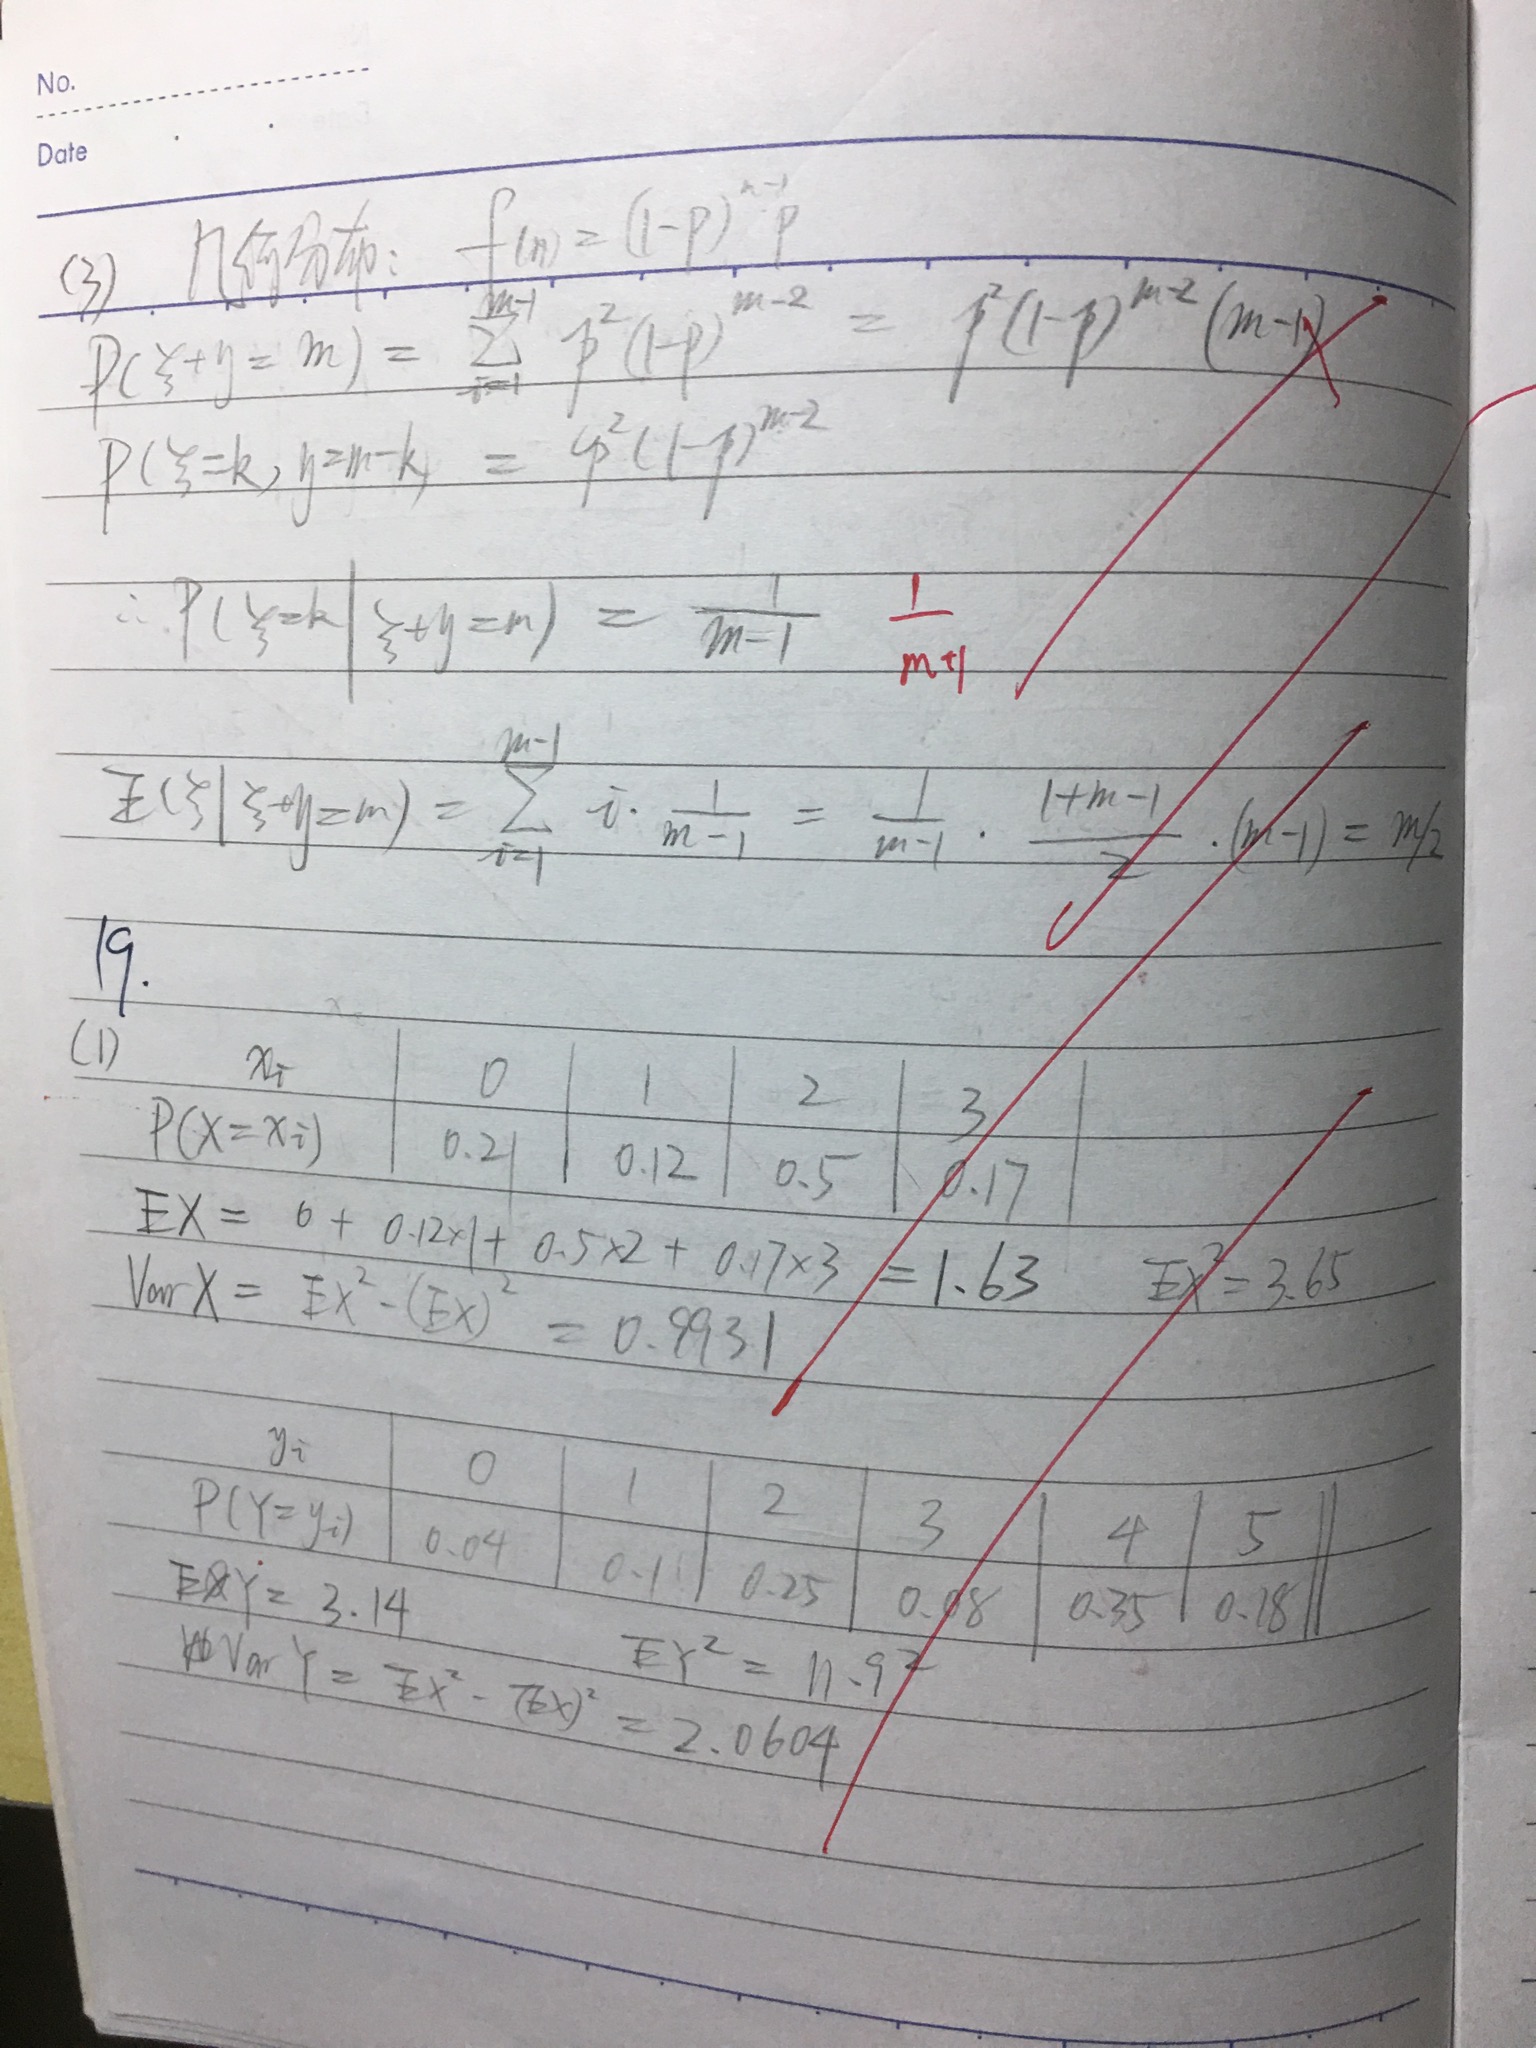 No.
Date
(3) 几何分布: f(n) = (1-p)^{n-1} p
P(ξ+η = m) = \sum_{i=1}^{m-1} p^2 (1-p)^{m-2} = p^2 (1-p)^{m-2} (m-1)
P(ξ=k, η=m-k) = p^2 (1-p)^{m-2}
∴ P(ξ=k | ξ+η=m) = \frac{1}{m-1} \frac{1}{m+1}
E(ξ | ξ+η=m) = \sum_{i=1}^{m-1} i · \frac{1}{m-1} = \frac{1}{m-1} · \frac{1+m-1}{2} · (m-1) = m/2
19.
(1) x_i | 0 | 1 | 2 | 3
P(X=x_i) | 0.21 | 0.12 | 0.5 | 0.17
EX = 0 + 0.12×1 + 0.5×2 + 0.17×3 = 1.63 EX^2 = 3.65
Var X = EX^2 - (EX)^2 = 0.9931
y_i | 0 | 1 | 2 | 3 | 4 | 5
P(Y=y_i) | 0.04 | 0.1 | 0.25 | 0.08 | 0.35 | 0.18
EY = 3.14 EY^2 = 11.92
Var Y = EX^2 - (EX)^2 = 2.0604